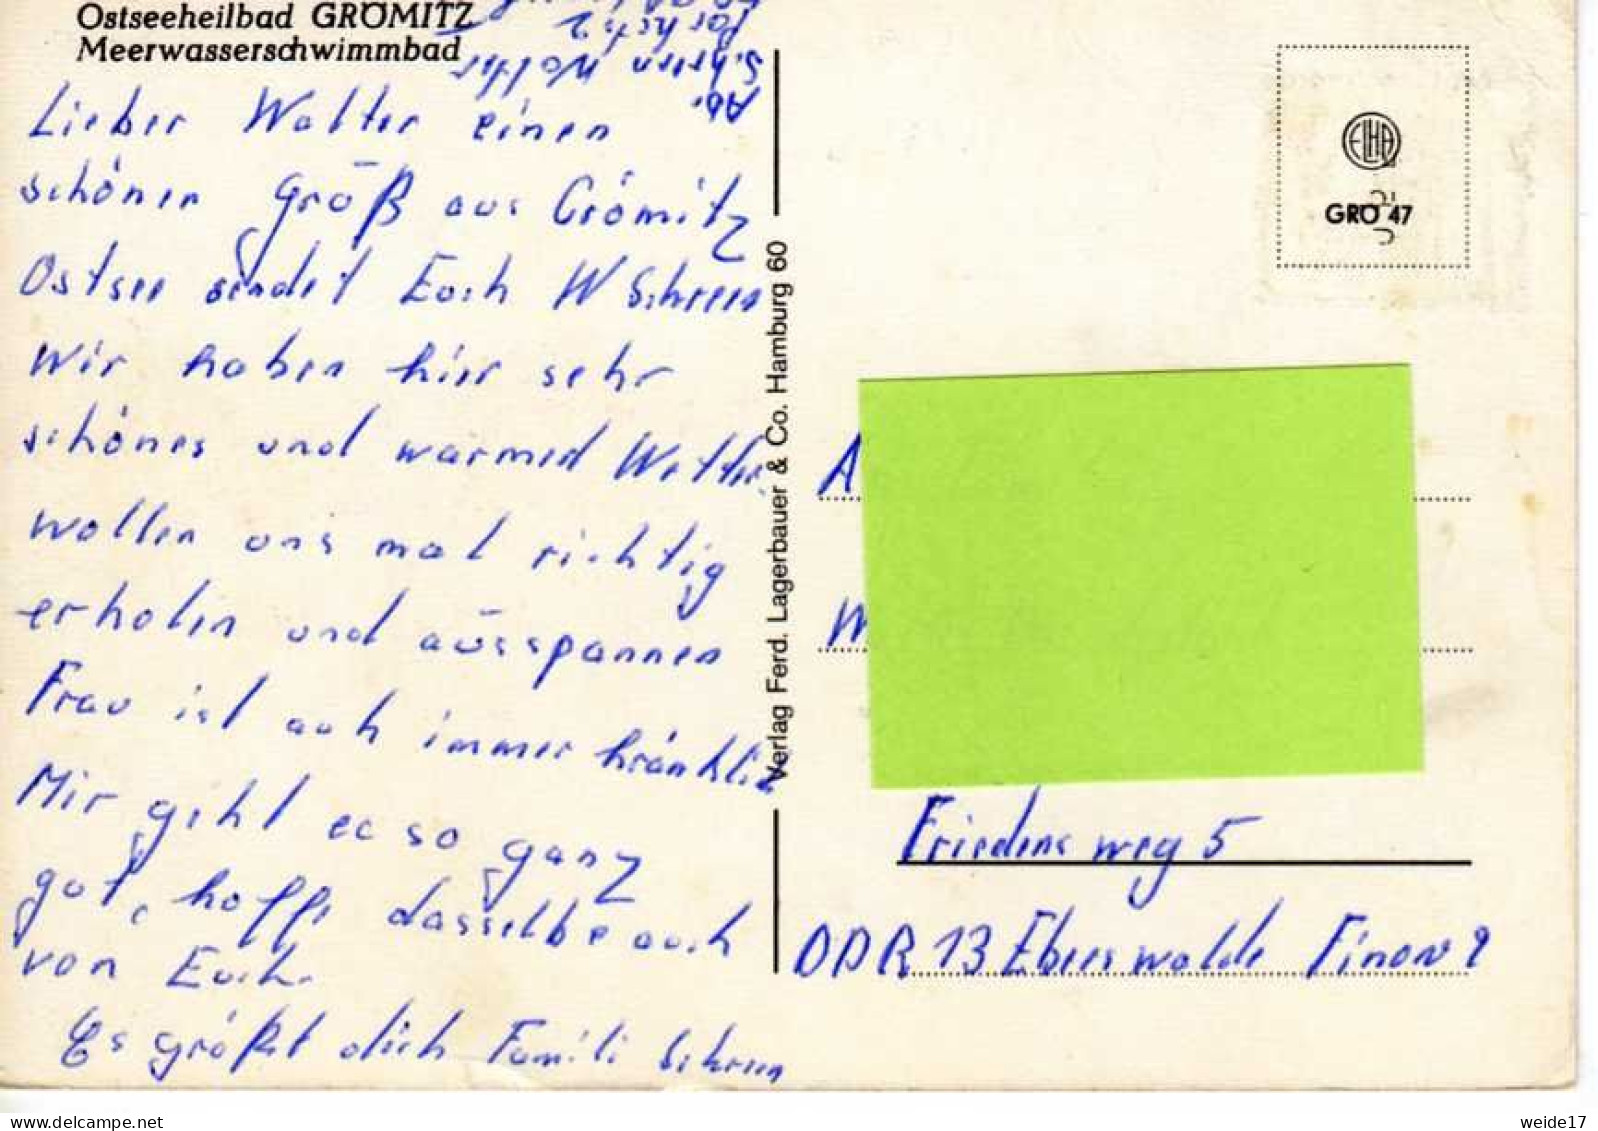 Ostseeheilbad GRÖMITZ
Meerwasserschwimmbad
Ab.
Schreen Walter
Lieber Walter einen
schönen Größ aus Grömitz
Ostsee sendet Euch W Schreen
Wir haben hier sehr
schönes und warmed Wetter
wollen uns mal richtig
erholen und ausspannen
Frau ist auch immer kränklich
Mir geht es so ganz
gut, hoffe dasselbe auch
von Euch.
Es größt dich Famili Schreen
Verlag Ferd. Lagerbauer & Co. Hamburg 60
ELHA
GRÖ 47
A
W
Friedens weg 5
DDR 13 Eberswalde Finow 2
weide17